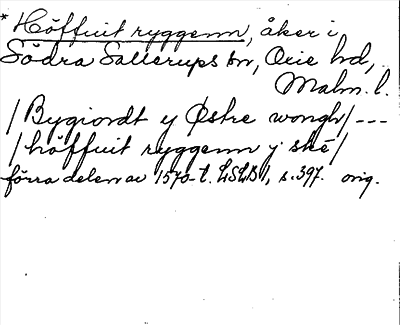 * Höffuit ryggenn, åker i
Södra Sallerups sn, Oxie hd,
Malm. l.
/Bygiordt y Østre wongh/ ---
/höffuit ryggenn y skë/
förra delen av 1570-t. LSLB I, s. 397. orig.